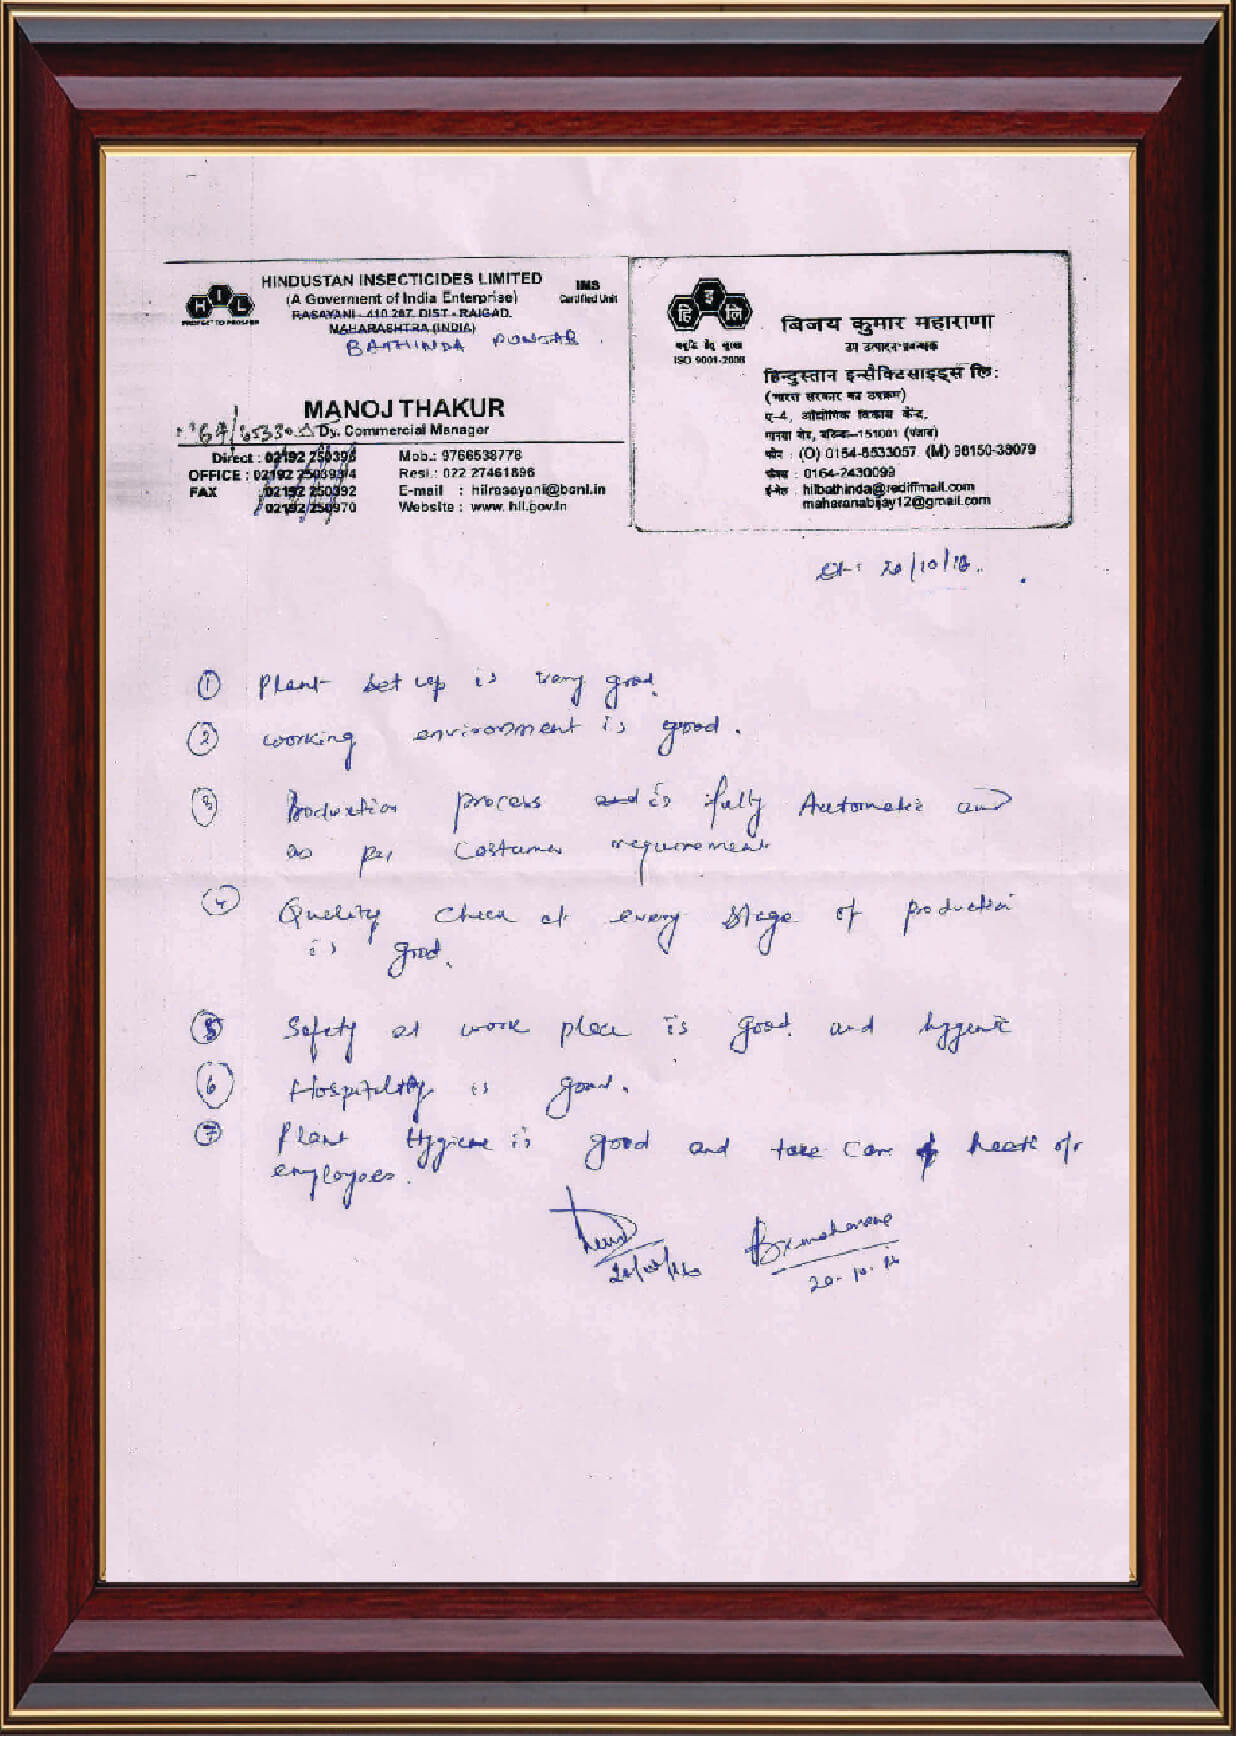 HIL
HINDUSTAN INSECTICIDES LIMITED
(A Goverment of India Enterprise)
IMS
Certified Unit
RASAYANI - 410 207. DIST - RAIGAD.
MAHARASHTRA (INDIA)
BATHINDA PUNJAB
MANOJ THAKUR
Dy. Commercial Manager
Direct : 02192 250394
OFFICE : 02192
FAX 02192 250392
02192 250970
Mob.: 9766538778
Resi.: 022 27461896
E-mail : hilrasayani@bsnl.in
Website : www. hil.gov.in
हिइलि
ISO 9001-2008
बिजय कुमार महाराणा
उप उत्पादन प्रबन्धक
हिन्दुस्तान इन्सैक्टिसाइड्स लि:
(भारत सरकार का उपक्रम)
ए-4, औद्योगिक विकास केन्द्र,
मानसा रोड, बठिंडा-151001 (पंजाब)
फोन : (O) 0164-6533057 (M) 98150-38079
फैक्स : 0164-2430099
ई-मेल : hilbathinda@rediffmail.com
maharanabijay12@gmail.com
dt: 20/10/16.
① Plant set up is very good.
② working environment is good.
③ Production process and is fully Automatic and
as per Costumer requirement
④ Quality Check at every stage of production
is good.
⑤ Safety at work place is good and hygenic
⑥ Hospitality is good.
⑦ Plant Hygiene is good and take care of health of
employees.
Bkmaharana
20-10-16